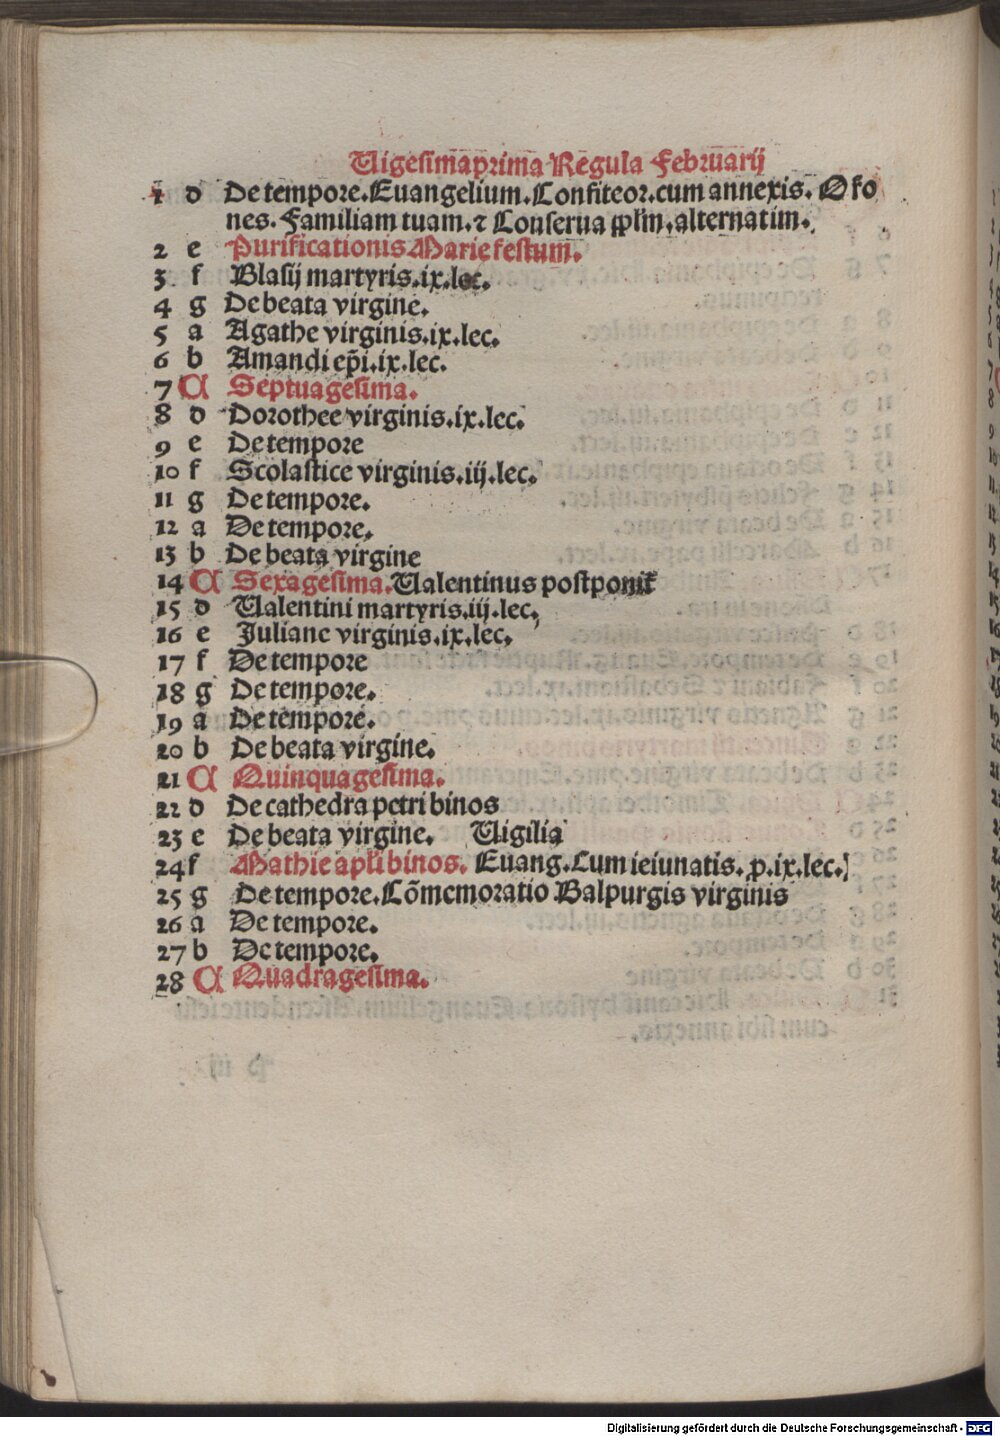 Uigesimaprima Regula Februarij
1 d De tempore. Euangelium. Confiteor. cum annexis. Oro
nes. Familiam tuam. ⁊ Conserua pplm̄. alternatim.
2 e Purificationis Marie festum.
3 f Blasij martyris. ix. lec.
4 g De beata virgine.
5 a Agathe virginis. ix. lec.
6 b Amandi ep̄i. ix. lec.
7 A Septuagesima.
8 d Dorothee virginis. ix. lec.
9 e De tempore
10 f Scolastice virginis. iij. lec.
11 g De tempore.
12 a De tempore.
13 b De beata virgine
14 A Sexagesima. Ualentinus postponit̄
15 d Ualentini martyris. iij. lec.
16 e Juliane virginis. ix. lec.
17 f De tempore
18 g De tempore.
19 a De tempore.
20 b De beata virgine.
21 A Quinquagesima.
22 d De cathedra petri binos
23 e De beata virgine. Uigilia
24 f Mathie apl̄i binos. Euang. Cum ieiunatis. p. ix. lec.
25 g De tempore. Cōmemoratio Balpurgis virginis
26 a De tempore.
27 b De tempore.
28 A Quadragesima.
Digitalisierung gefördert durch die Deutsche Forschungsgemeinschaft - DFG